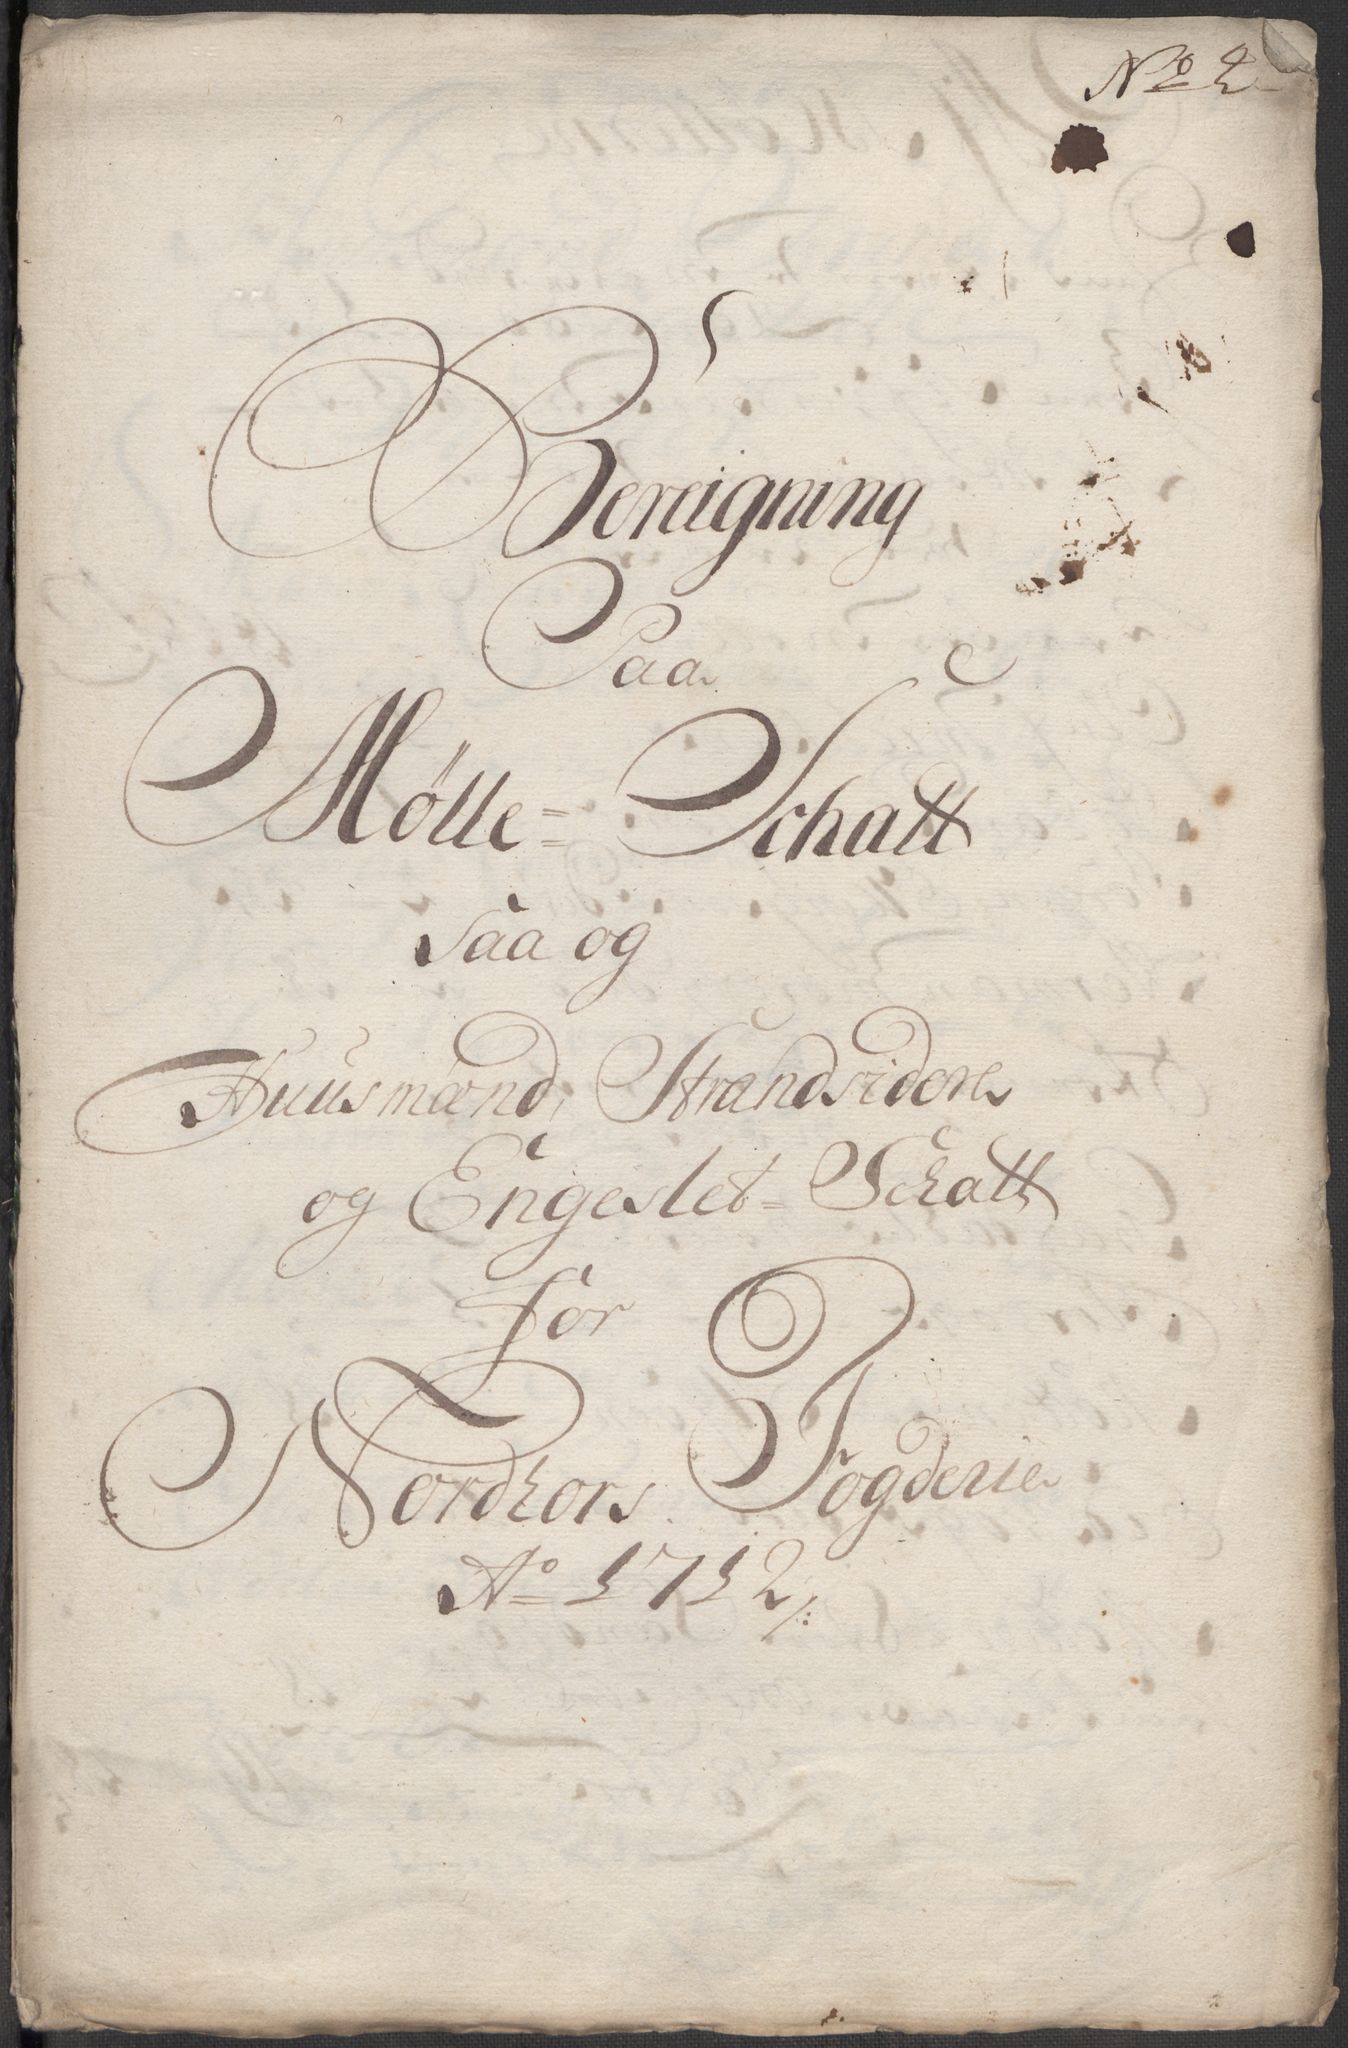 No 2
Bereigning
Paa
Mölle= Schatt
Saa og
Huusmænd, Strandsidere
og Engeslet= Schatt
for
Nordhors Fogderie
Ao 1712/: